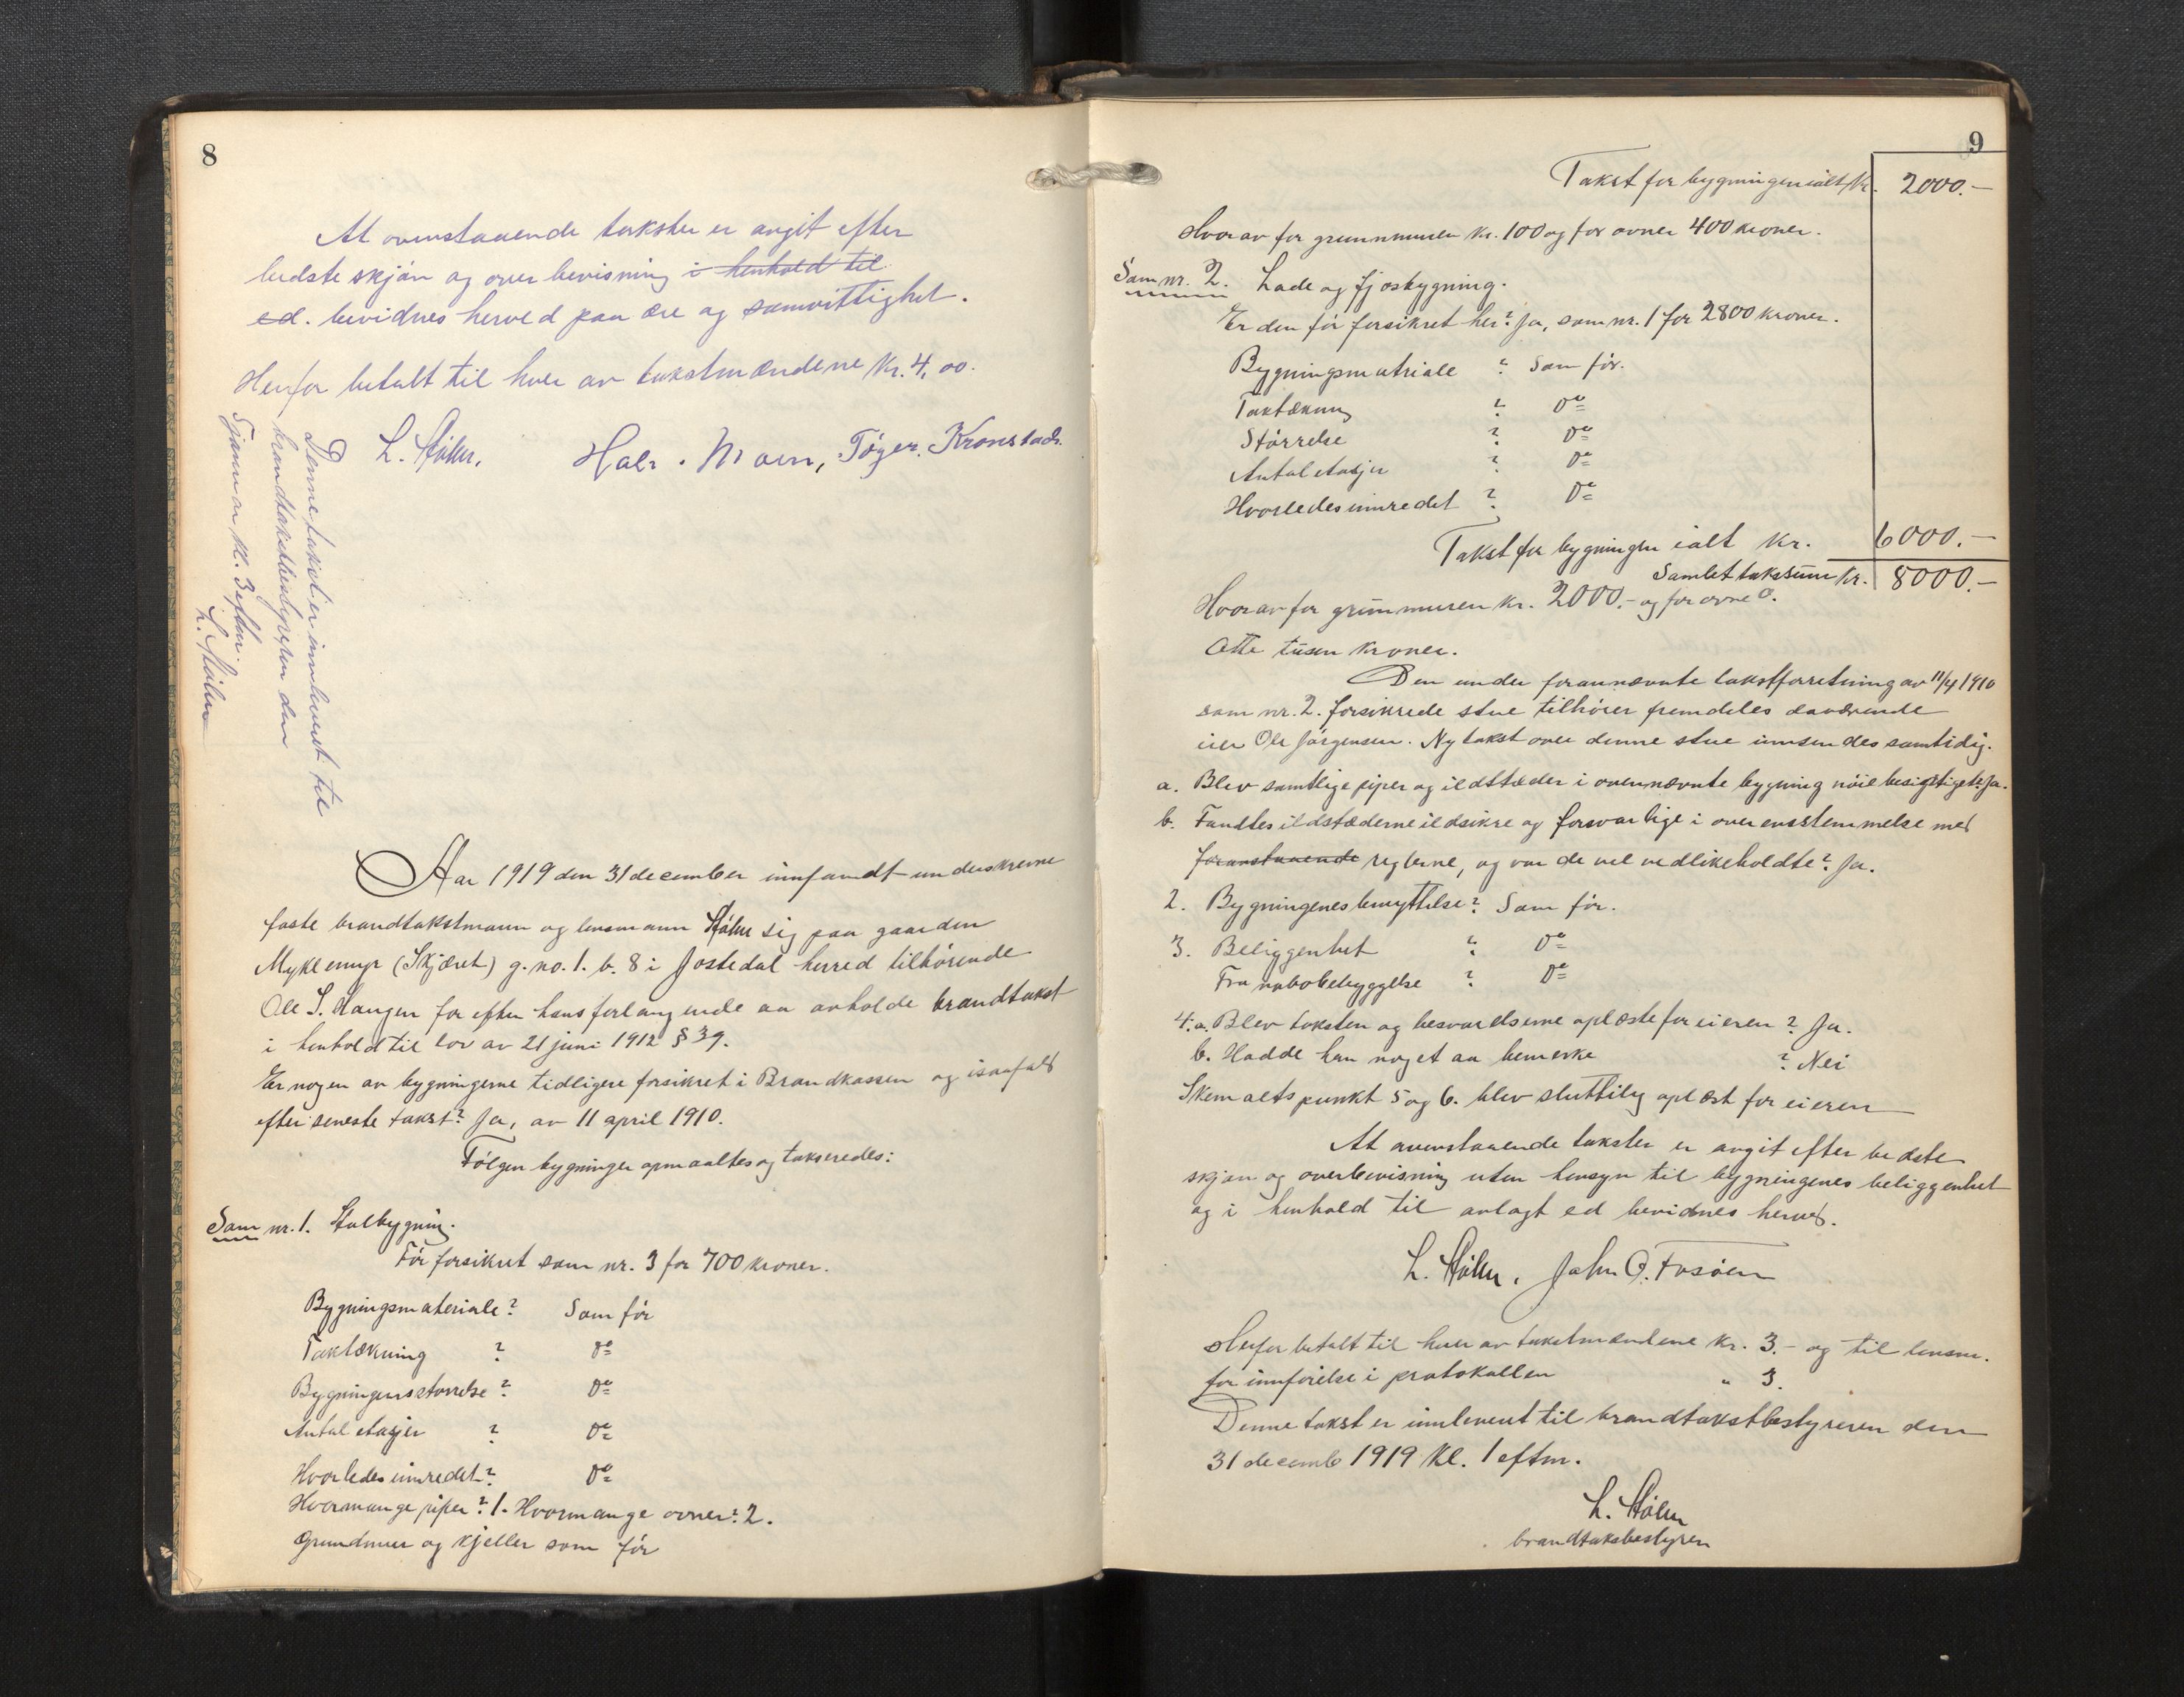 8
At ovenstaaende takster er avgit efter
bedste skjøn og overbevisning i henhold til
ed. bevidnes herved paa ære og samvittighet.
Herfor betalt til hver av takstmændene Kr. 4,00.
L. Stølen, Halv. Moen, Tøger Kronstad.
Denne takst er innlevert til
brandtakstbestyreren den
kl. 3 eftm.
L. Stølen
Aar 1919 den 31 december innfandt underskrevne
faste brandtakstmann og lensmann Stølen sig paa gaarden
Myklemyr (Skjæret) g.no. 1. b. 8 i Jostedal herred tilhørende
Ole S. Haugen for efter hans forlangende aa avholde brandtakst
i henhold til lov av 21 juni 1912 § 39.
Er nogen av bygningerne tidligere forsikret i Brandkassen og isaafald
efter seneste takst? Ja, av 11 april 1910.
Følgen bygninger opmaaltes og takseredes:
Som nr. 1. Stulbygning.
Før forsikret som nr. 3 for 700 kroner.
Bygningsmateriale? Som før
Taktækning ? do
Bygningens størrelse? do
Antal etasjer ? do
Hvorledes innredet? do
Hvormange piper? 1. Hvormange ovner? 2.
Grundmur og kjeller som før
9
Takst for bygningen ialt Kr. 2000.-
Hvorav for grunnmuren kr. 100 og for ovner 400 kroner.
Som nr. 2. Lade og fjøsbygning.
Er den før forsikret her? Ja, som nr. 1 for 2800 kroner.
Bygningsmatriale ? Som før.
Taktækning ? do
Størrelse ? do
Antal etasjer ? do
Hvorledes innredet ? do
Takst for bygningen ialt Kr. 6000.-
Samlet takssum kr. 8000.-
Hvorav for grunmuren Kr. 2000.- og for ovne 0.
Otte tusen kroner.
Den under forannævnte takstforretning av 11/4 1910
som nr. 2. forsikrede stue tilhører fremdeles daværende
eier Ole Jørgensen. Ny takst over denne stue innsendes samtidig.
a. Blev samtlige piper og ildsteder i ovennævnte bygning nøie besigtiget? Ja.
b. Fandtes ildstæderne ildsikre og forsvarlige i overensstemmelse med
foranstaaende reglerne, og var de vel vedlikeholdte? Ja.
2. Bygningenes benyttelse? Som før.
3. Beliggenhet ? do
Fra nabobebyggelse ? do
4. a. Blev taksten og besvarelserne oplæste for eieren? Ja.
b. Hadde han noget aa bemerke ? Nei
Skemaets punkt 5 og 6. blev sluttelig oplæst for eieren
At ovenstaaende takster er avgit efter bedste
skjøn og overbevisning uten hensyn til bygningenes beliggenhet
og i henhold til avlagt ed bevidnes herved.
L. Stølen. John O. Fosøen
Herfor betalt til hver av takstmændene kr. 3.- og til lensm.
for innførelse i protokollen " 3.
Denne takst er innlevert til brandtakstbestyreren den
31 decemb 1919 Kl. 1 eftm.
L. Stølen
brandtaksbestyrer